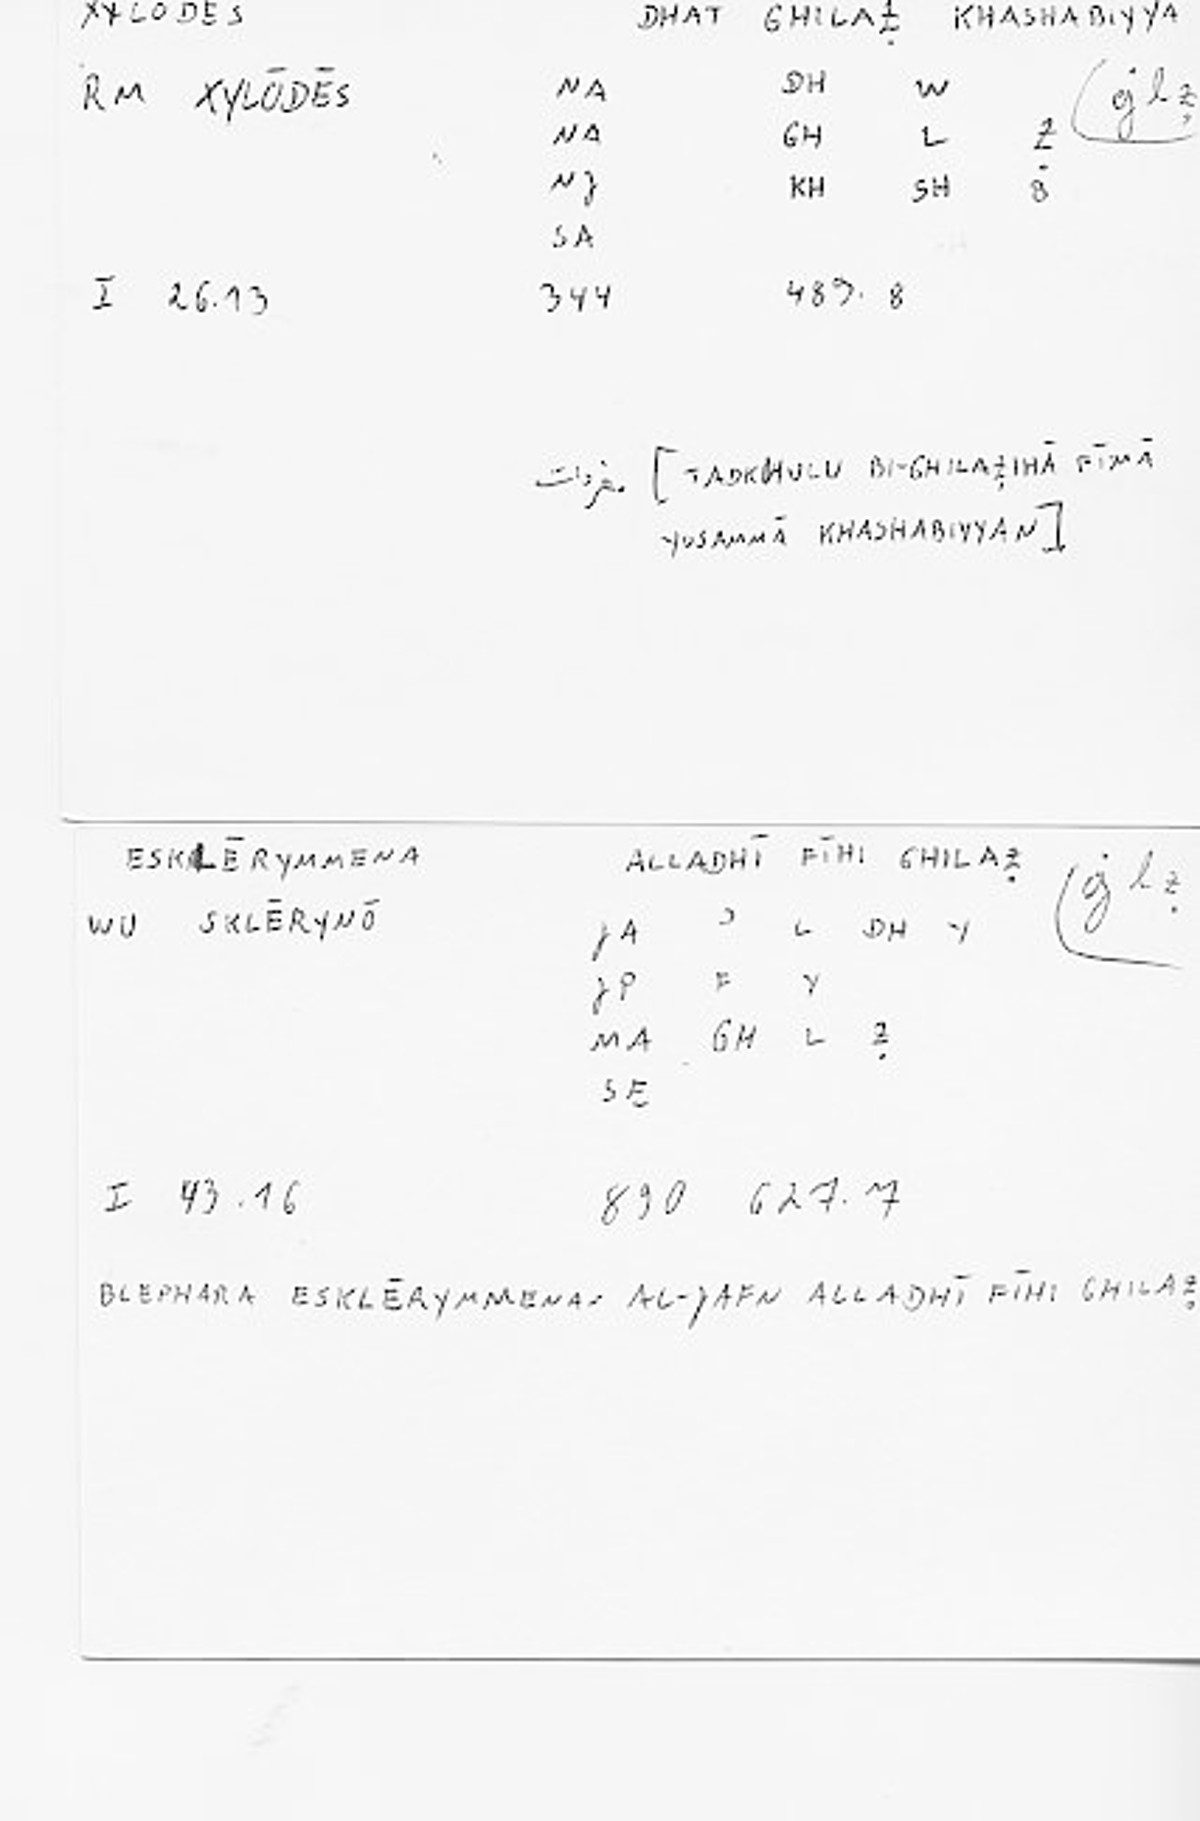 XYLODES DHAT GHILAẒ KHASHABIYYA
RM XYLŌDĒS NA DH W (ġlẓ
NA GH L Ẓ
NJ KH SH B
SA
I 26.13 344 489.8
مفردات [TADKHULU BI-GHILAẒIHĀ FĪMĀ
YUSAMMĀ KHASHABIYYAN]
ESKLĒRYMMENA ALLADHĪ FĪHI GHILAẒ (ġlẓ
WU SKLĒRYNŌ JA ʾ L DH Y
JP F Y
MA GH L Ẓ
SE
I 43.16 890 627.7
BLEPHARA ESKLĒRYMMENA· AL-JAFN ALLADHĪ FĪHI GHILAẒ